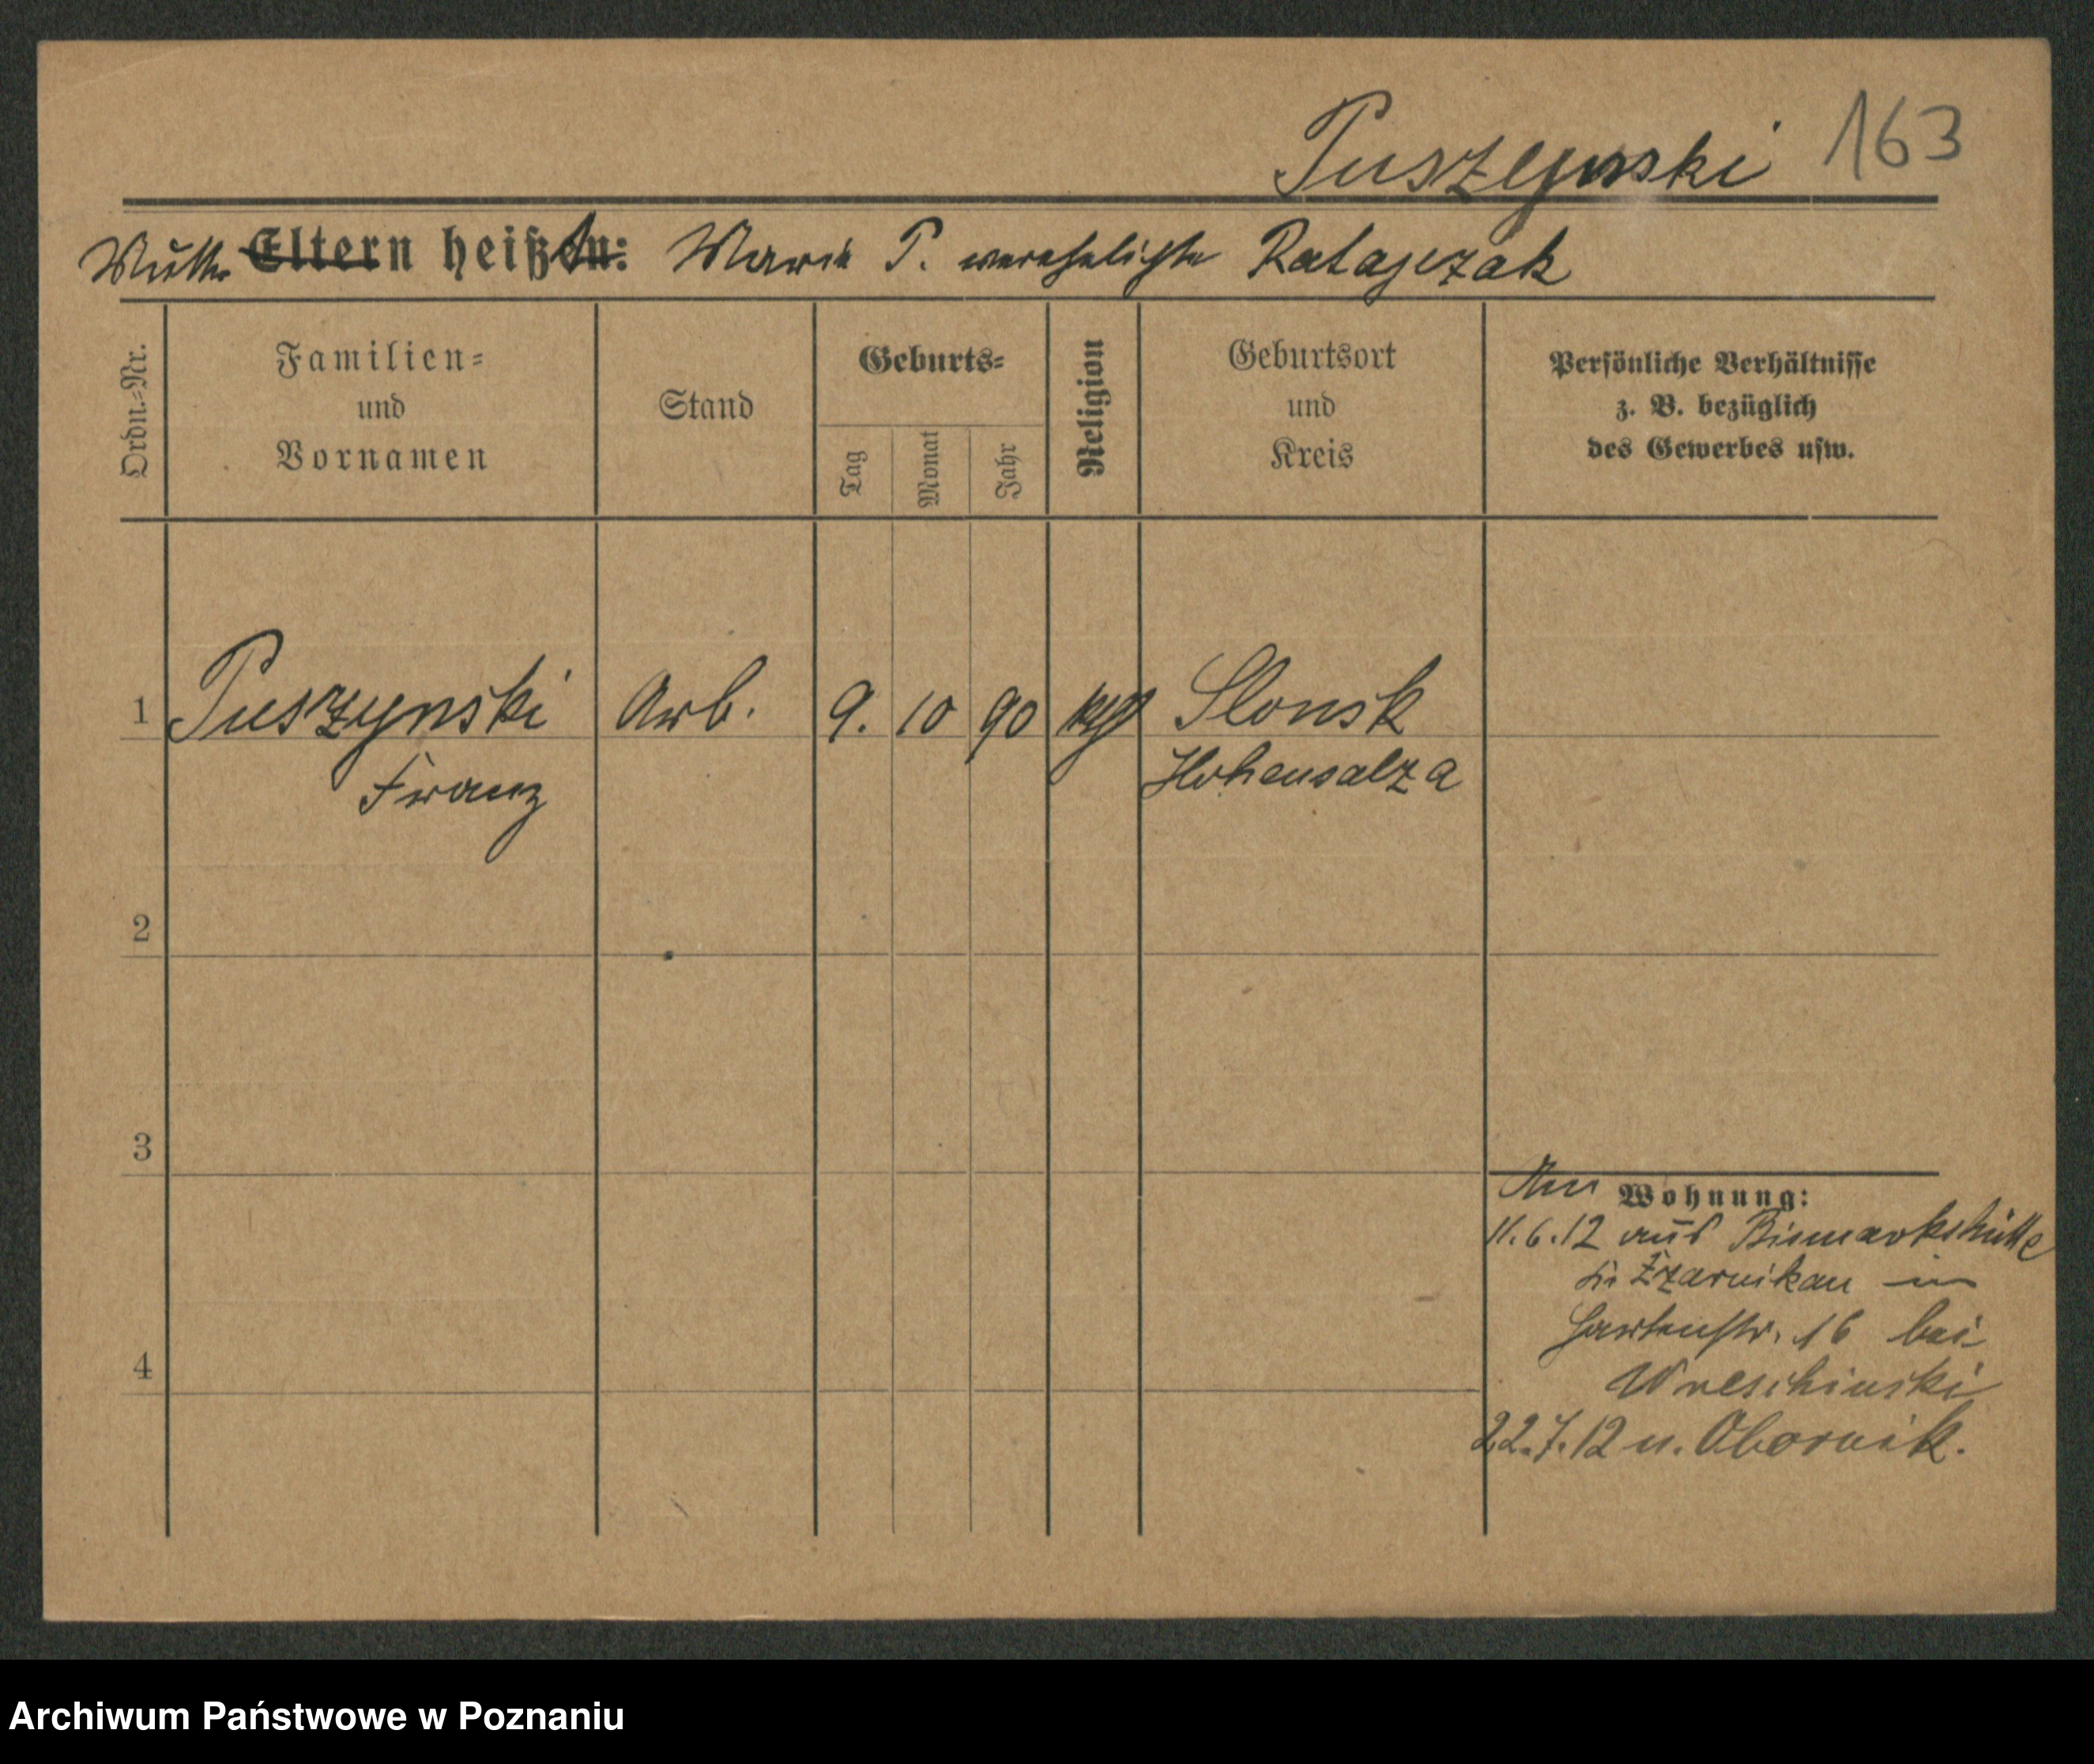 Puszynski 163
Mutter Eltern heißt: Marie P. verehelichte Ratajczak
Ordn.=Nr.
Familien=
und
Vornamen
Stand
Geburts=
Tag
Monat
Jahr
Religion
Geburtsort
und
Kreis
Persönliche Verhältnisse
z. B. bezüglich
des Gewerbes usw.
1 Puszynski Arb. 9. 10 90 Slonsk
Franz Hohensalza
2
3
4
Wohnung:
11.6.12 aus Bismarkshütte
Gartenstr. 16 bei
Wreschinski
22.7.12 n. Obornik.
Archiwum Państwowe w Poznaniu